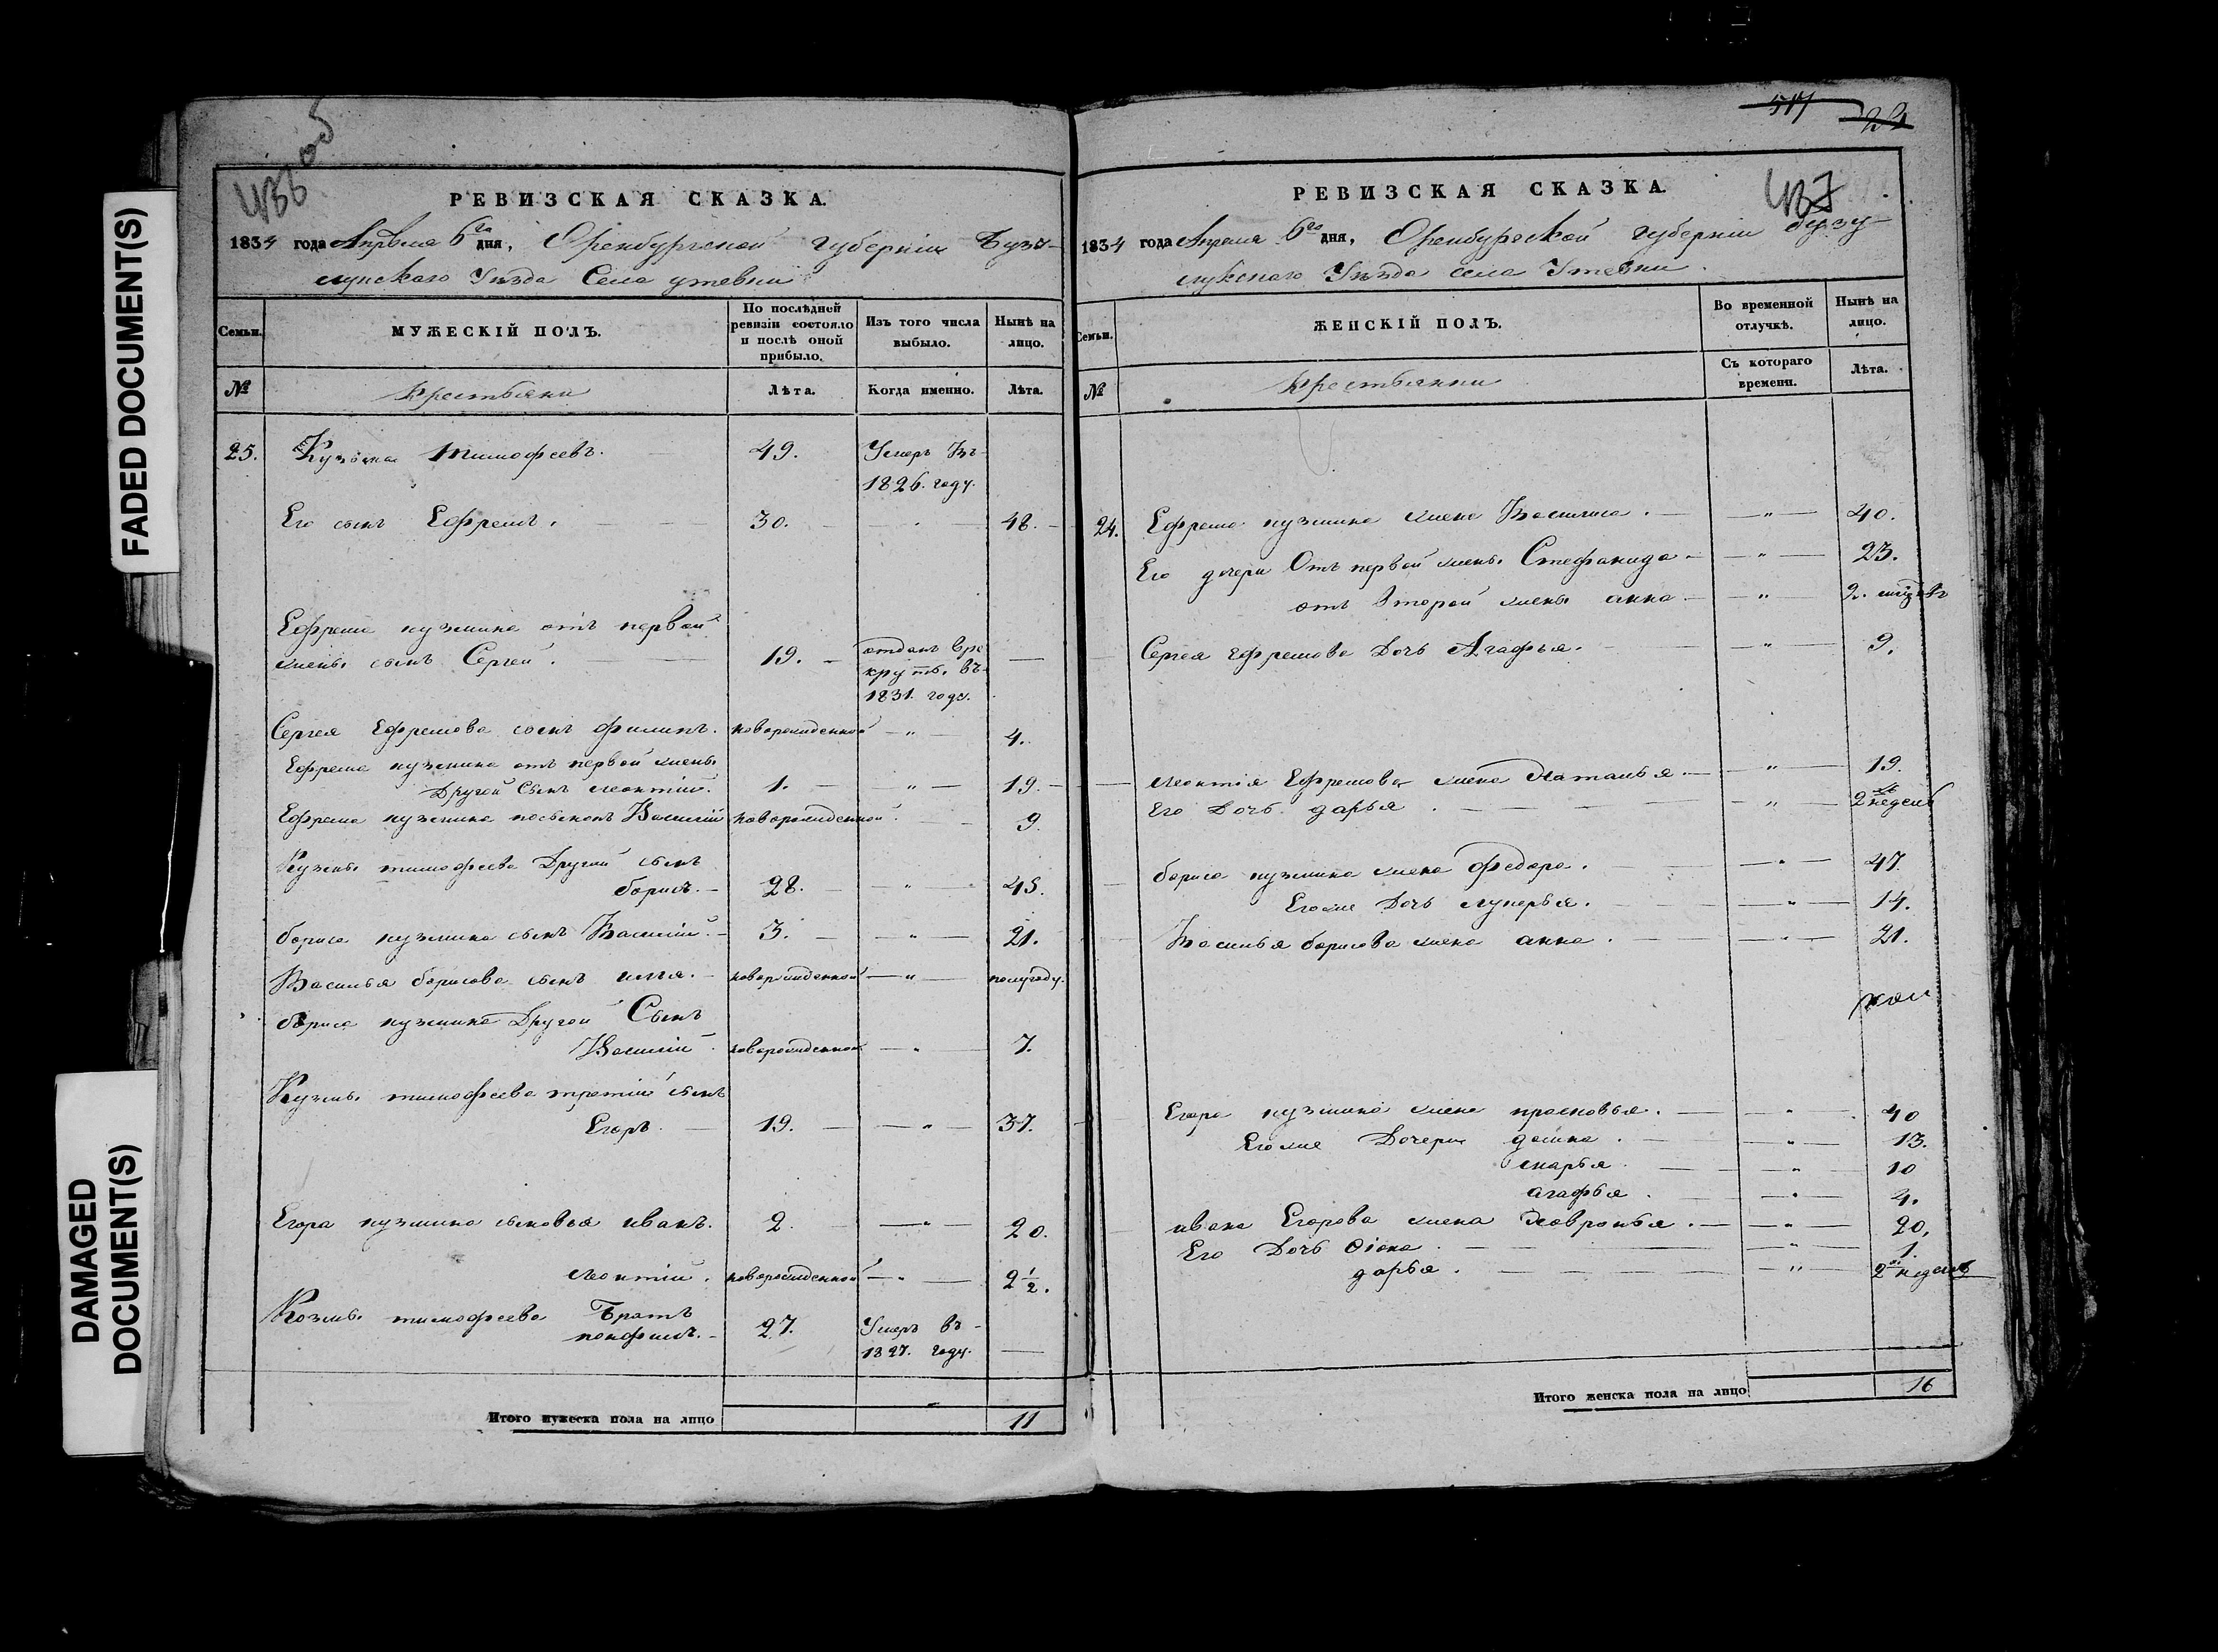 FADED DOCUMENT(S)
DAMAGED
DOCUMENT(S)
436 об
РЕВИЗСКАЯ СКАЗКА.
1834 года Апрѣля 6го дня, Оренбургской губерніи Бузу-
лукского Уѣзда Села утевки
Семьи.
МУЖЕСКІЙ ПОЛЪ.
По послѣдней ревизіи состояло и послѣ оной прибыло.
Изъ того числа выбыло.
Нынѣ на лицо.
№
крестьяни
Лѣта.
Когда именно.
Лѣта.
25. Кузьма тимофеевъ. 49. Умеръ въ
1826. году.
Его сынъ Ефремъ. 30. 48.
Ефрема кузмина отъ первой
жены сынъ Сергей. 19. отданъ вре
крутъ. въ
1831. году.
Сергея Ефремова сынъ филипъ. новорожденной " 4.
Ефрема кузмина отъ первой жены
Другой сынъ леонтій. 1. " 19.
Ефрема кузмина Василій новорожденной. 9.
Кузмы тимофеева Другой сынъ
борисъ. 28. " 45.
бориса кузмина сынъ Василій. 3. " 21.
Василья борисова сынъ илья. новорожденной " полугоду.
бориса кузмина Другой Сынъ
Василій новорожденной " 7.
Кузмы тимофеева третій сынъ
Егоръ. 19. " 37.
Егора кузмина сыновья иванъ. 2. " 20.
леонтій. новорожденной " 2 1/2.
Козмы тимофеева Братъ
понфилъ. 27. Умеръ въ
1827. году.
Итого мужеска пола на лицо 11
517
437
РЕВИЗСКАЯ СКАЗКА.
1834 года Апреля 6го дня, Оренбургской губерніи бузу
лукского Уѣзда села Утевки.
Семьи.
ЖЕНСКІЙ ПОЛЪ.
Во временной отлучкѣ.
Нынѣ на лицо.
№
крестьянки
Съ котораго времени.
Лѣта.
24. Ефрема кузмина жена Василиса. " 40.
Его дочери Отъ первой жены Стефанида " 23.
отъ второй жены анна " 2.
Сергея Ефремова Дочь Агафья. " 9.
леонтія Ефремова жена Наталья " 19.
Его Дочь дарья. " 2 недель
бориса кузмина жена федора. " 47.
Егоже Дочь лукерья. " 14.
Василья борисова жена анна. " 21.
Егора кузмина жена прасковья. " 40
Егоже Дочери домна. " 13.
марья. " 10
агафья. " 4.
ивана Егорова жена Хавронья. " 20.
Его Дочь Фіона. " 1.
дарья. " 2 недель
Итого женска пола на лицо 16